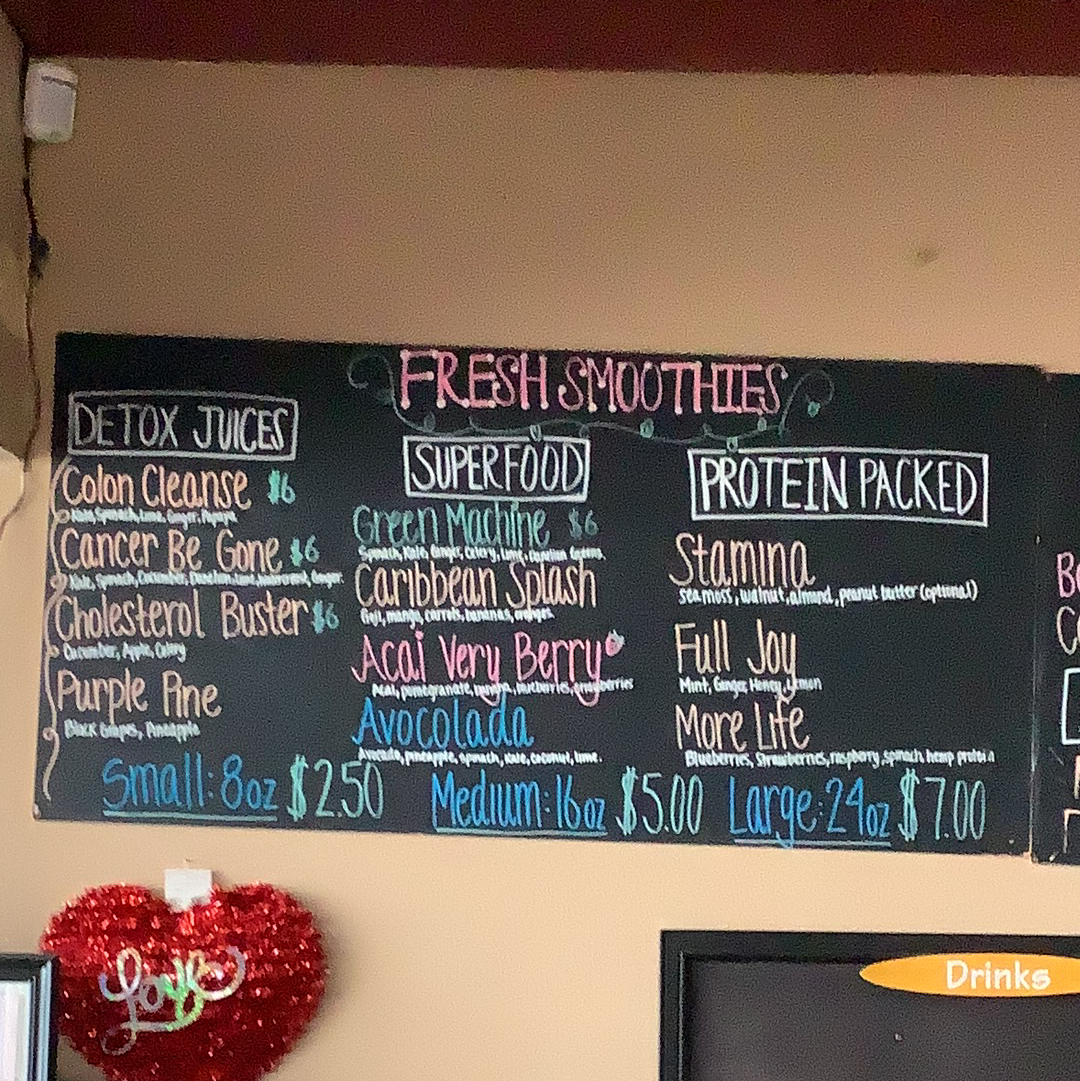 FRESH SMOOTHIES
DETOX JUICES
Colon Cleanse $6
Kale, Spinach, Lime, Ginger, Papaya
Cancer Be Gone $6
Kale, Spinach, Cucumber, Dandelion, Lime, Watercress, Ginger
Cholesterol Buster $6
Cucumber, Apple, Celery
Purple Pine
Black Grapes, Pineapple
SUPERFOOD
Green Machine $6
Spinach, Kale, Ginger, Celery, Lime, Greens
Caribbean Splash
Goji, mango, carrots, bananas, oranges
Acai Very Berry
Acai, pomegranate, blueberries,
Avocolada
Avocado, pineapple, spinach, kale, coconut, lime.
PROTEIN PACKED
Stamina
Sea moss, walnut, almond, peanut butter (optional)
Full Joy
Mint, Ginger, Honey, Lemon
More Life
Blueberries, Strawberries, raspberry, spinach, hemp protein
Small: 8oz $2.50 Medium: 16oz $5.00 Large: 24oz $7.00
Love
Drinks